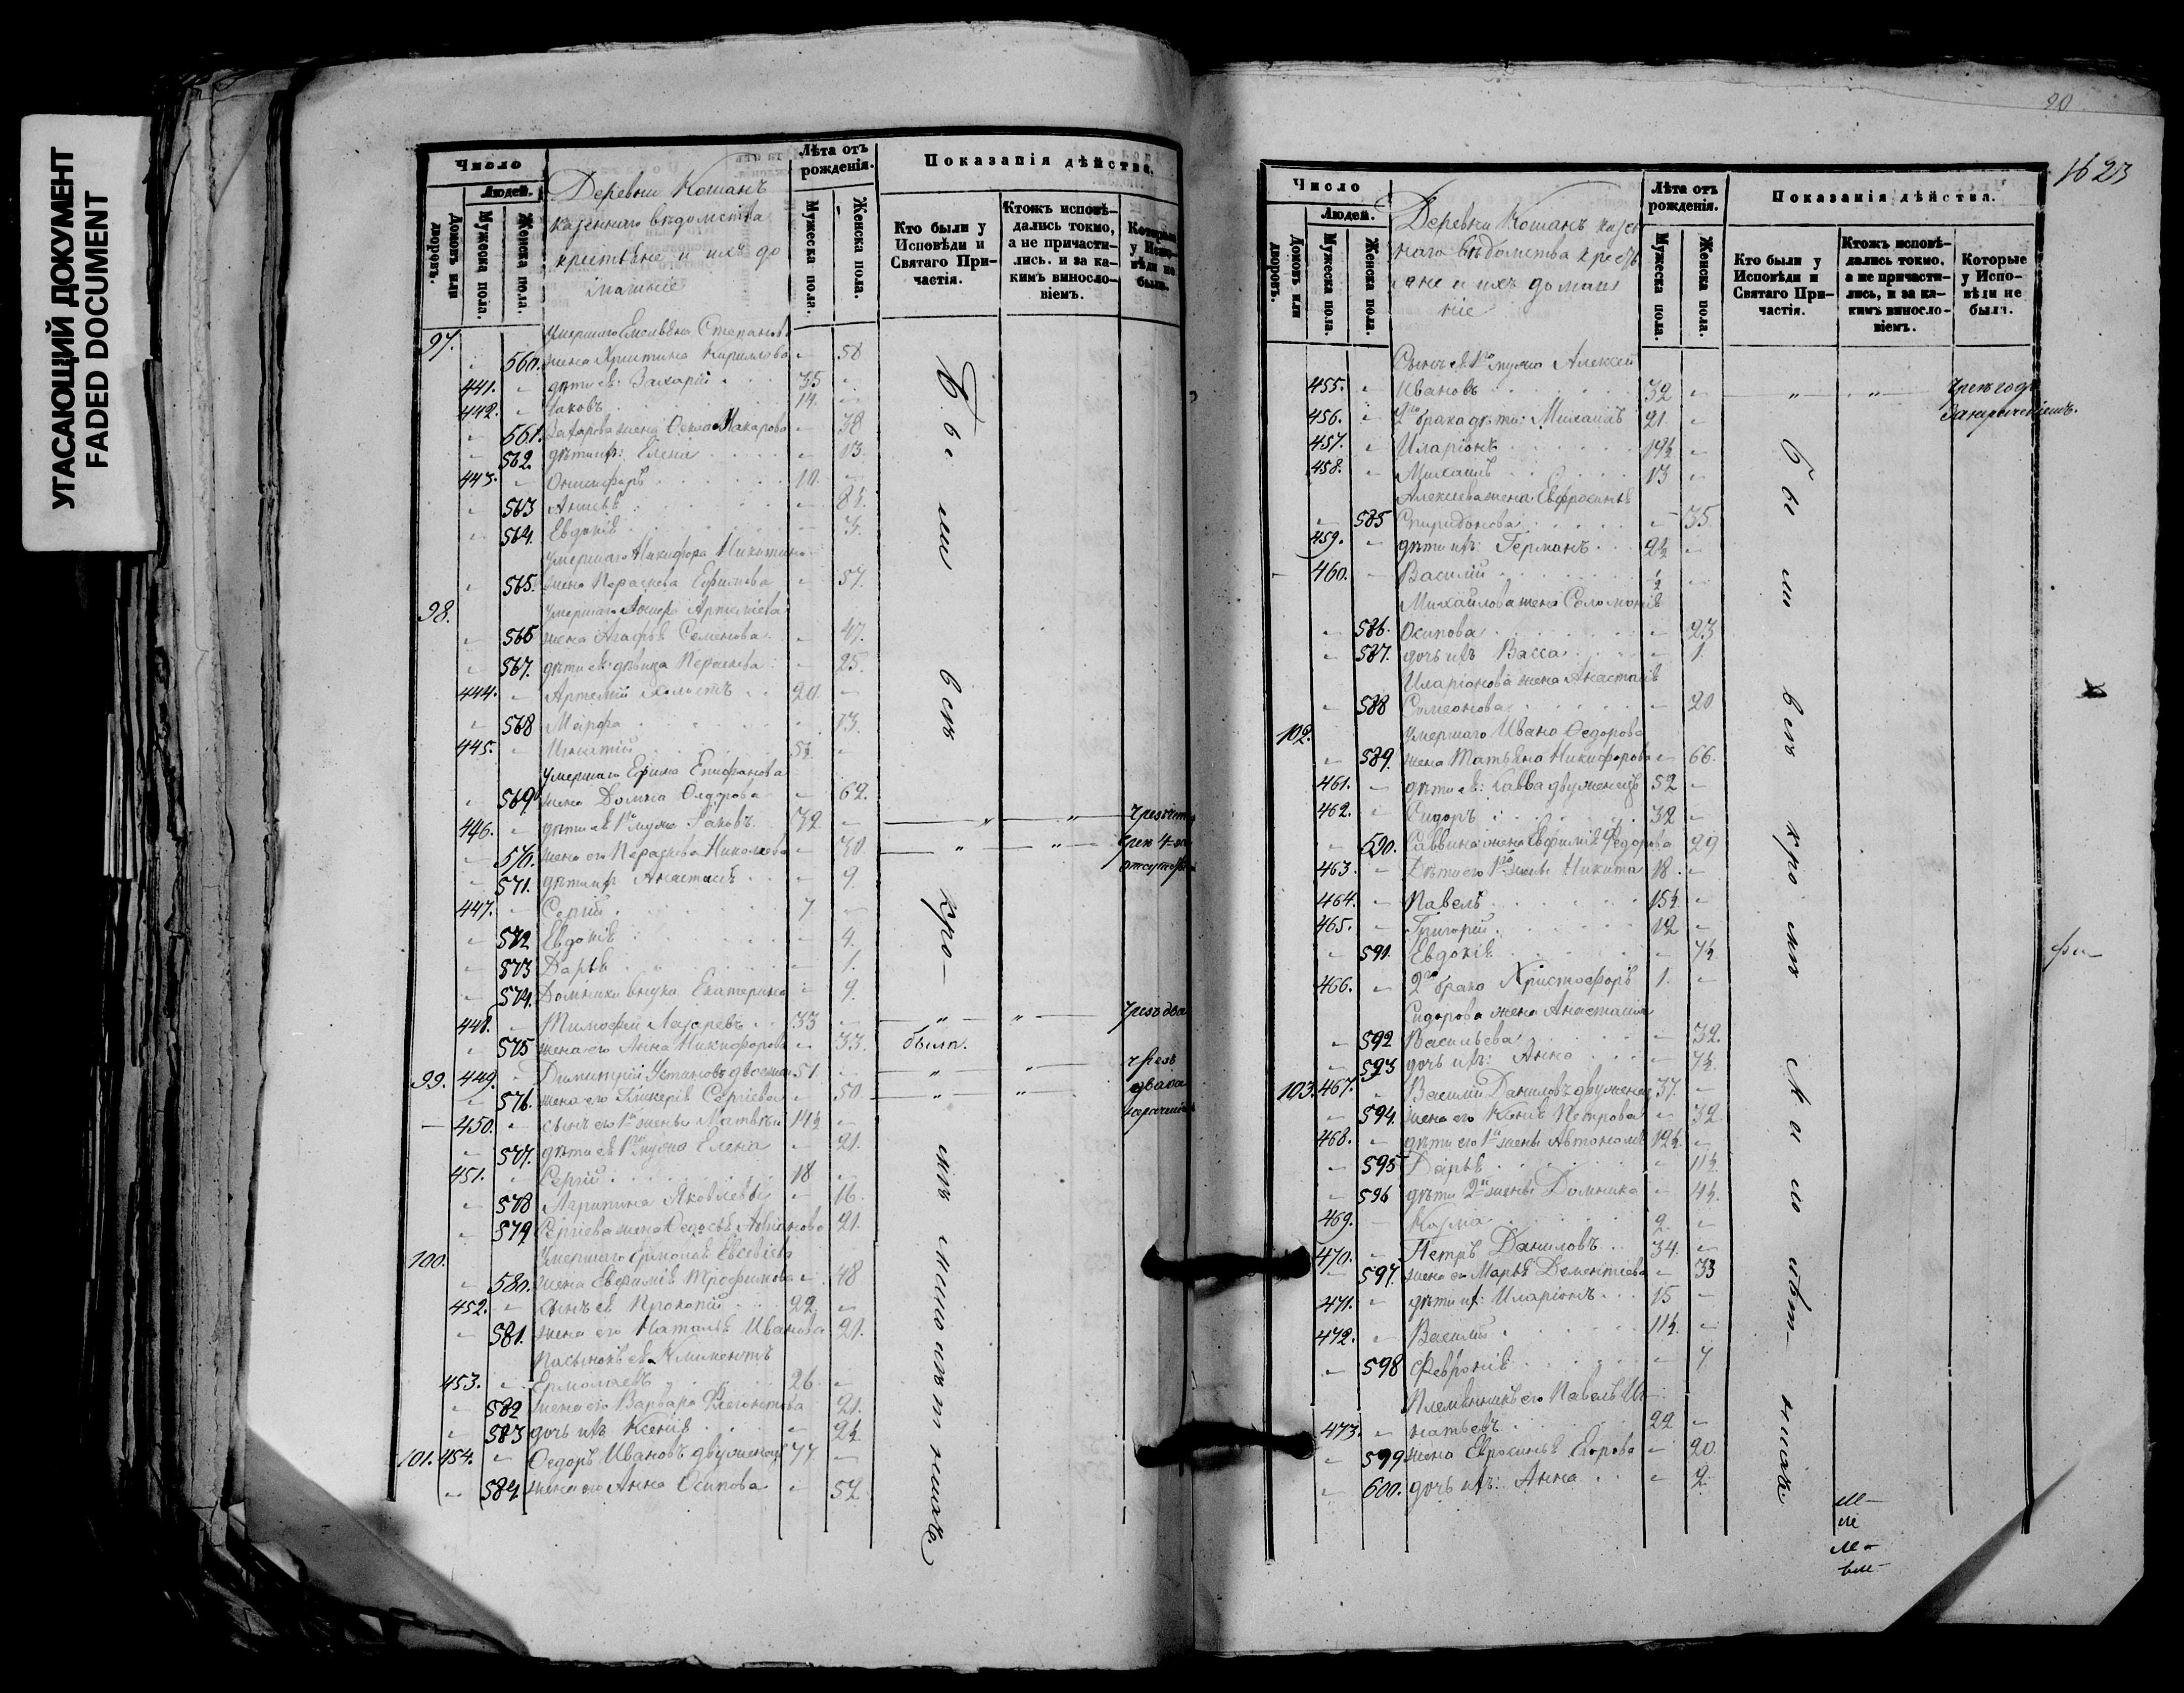 УГАСАЮЩИЙ ДОКУМЕНТ
FADED DOCUMENT
Число
Людей.
Домовъ или дворовъ.
Мужеска пола.
Женска пола.
Деревни Кошанъ
казеннаго вѣдомства
крестьяне и ихъ до
машніе
Лѣта отъ рожденія.
Мужеска пола.
Женска пола.
Показанія дѣйства.
Кто были у Исповѣди и Святаго При-
частія.
Ктожъ исповѣ-
дались токмо,
а не причасти-
лись. и за ка-
кимъ виносло-
віемъ.
Которые
у Испо-
вѣди не
были.
97. умершаго Емельяна Степанова
560. жена Христина Кирилова 58
441. дѣти ея: Захарій 35
442. Іаковъ 14.
561. Захарова жена Ѳекла Макарова 38
562. дѣти их: Елена 13.
443. Онисифоръ 10
563 Анисья
564. Евдокія 3.
умершаго Никифора Никитина
565. жена Параскева Ефимова 57.
98. умершаго
566 жена Агафья Семенова 47.
567. дѣти ея: дѣвица Параскева 25.
444. Артемій холостъ 20.
568 Марфа 13.
445. Игнатій 5½
умершаго Ефима Епифанова
569 жена Домна Ѳедорова 62.
446. дѣти ея 1го мужа Іаковъ 32
570. жена его Параскева Николаева 30
571. дѣти их Анастасія 9.
447. Сергій 7
572 Евдокія 4.
573 Дарья 1.
574. Домники внука Екатерина 9.
448. Тимофей Лазаревъ 33 чрезъ два
575 жена его Анна Никифорова 33. была.
99. 449. Димитрій Устиновъ двоежен 51 чрезъ
576. жена его Гликерія Сергіева 50
450. сынъ его 1й жены Матвѣй 14½
577. дѣти ея 1го мужа Елена 21.
451. Сергій 18
578 Агрипина Яковлевы 16.
579 Сергіева жена Ѳедосья 21.
100. умершаго Ермолая Евсевіева
580. жена Евфимія Трофимова 48
452. сынъ ея Прокопій 22
581. жена его Наталья Иванова 21.
пасынокъ ея Климентъ
453. Ермолаевъ 26
582 жена его Варвара 21.
583 дочь ихъ Ксенія 2½
101. 454. Ѳедоръ Ивановъ двуженецъ 77
584. жена его Анна Осипова 52
Были всѣ кро-
мѣ малолѣтныхъ.
20
1623
Число
Людей.
Домовъ или дворовъ.
Мужеска пола.
Женска пола.
Деревни Кошанъ казен
наго вѣдомства кресть
яне и ихъ домаш
ніе
Лѣта отъ рожденія.
Мужеска пола.
Женска пола.
Показанія дѣйства.
Кто были у Исповѣди и Святаго При-
частія.
Ктожъ исповѣ-
дались токмо,
а не причасти-
лись, и за ка-
кимъ виносло-
віемъ.
Которые
у Испо-
вѣди не
были.
Сынъ ея 1го мужа Алексей
455. Ивановъ 32 чрезъ годъ
456. 2го брака дѣти: Михаилъ 21.
457. Иларіонъ 19½
458. Михаилъ 13
Алексеева жена Евфросинья
585 Спиридонова 35
459. дѣти ихъ: Германъ 2½
460. Василій ½
Михайлова жена Соломонія
586. Осипова 23
587. дочь ихъ Васса 1.
Иларіонова жена Анастасія
588 Симеонова 20
102. умершаго Ивана Ѳедорова
589. жена Татьяна Никифорова 66.
461. дѣти ея: Савва двуженецъ 52
462. Сидоръ 32
590. Саввина жена Евфимія Федорова 29
463. Дѣти его 1й жены Никита 18.
464. Павелъ 15½
465. Григорій 12
591. Евдокія 7½
466. 2го брака Христофоръ 1.
Сидорова жена Анастасія
592 Васильева 32.
593 дочь ихъ: Анна 7½
103. 467. Василій Даниловъ двуженец 37.
594. жена его Ксенія Петрова 32
468. дѣти его 1й жены Автономъ 12½
595 Дарья 11½
596 дѣти 2й жены Домника 4½
469. Козма 2.
470. Петръ Даниловъ 34.
597. жена его Марья Дементіева 33
471. дѣти их: Иларіонъ 15
472. Василій 11½
598 Февронія 7
Племянникъ его Павелъ Иг-
473. натьевъ 22
599 жена Евросинья Егорова 20.
600. дочь ихъ: Анна 2.
Были всѣ кромѣ малолѣт-
ныхъ.